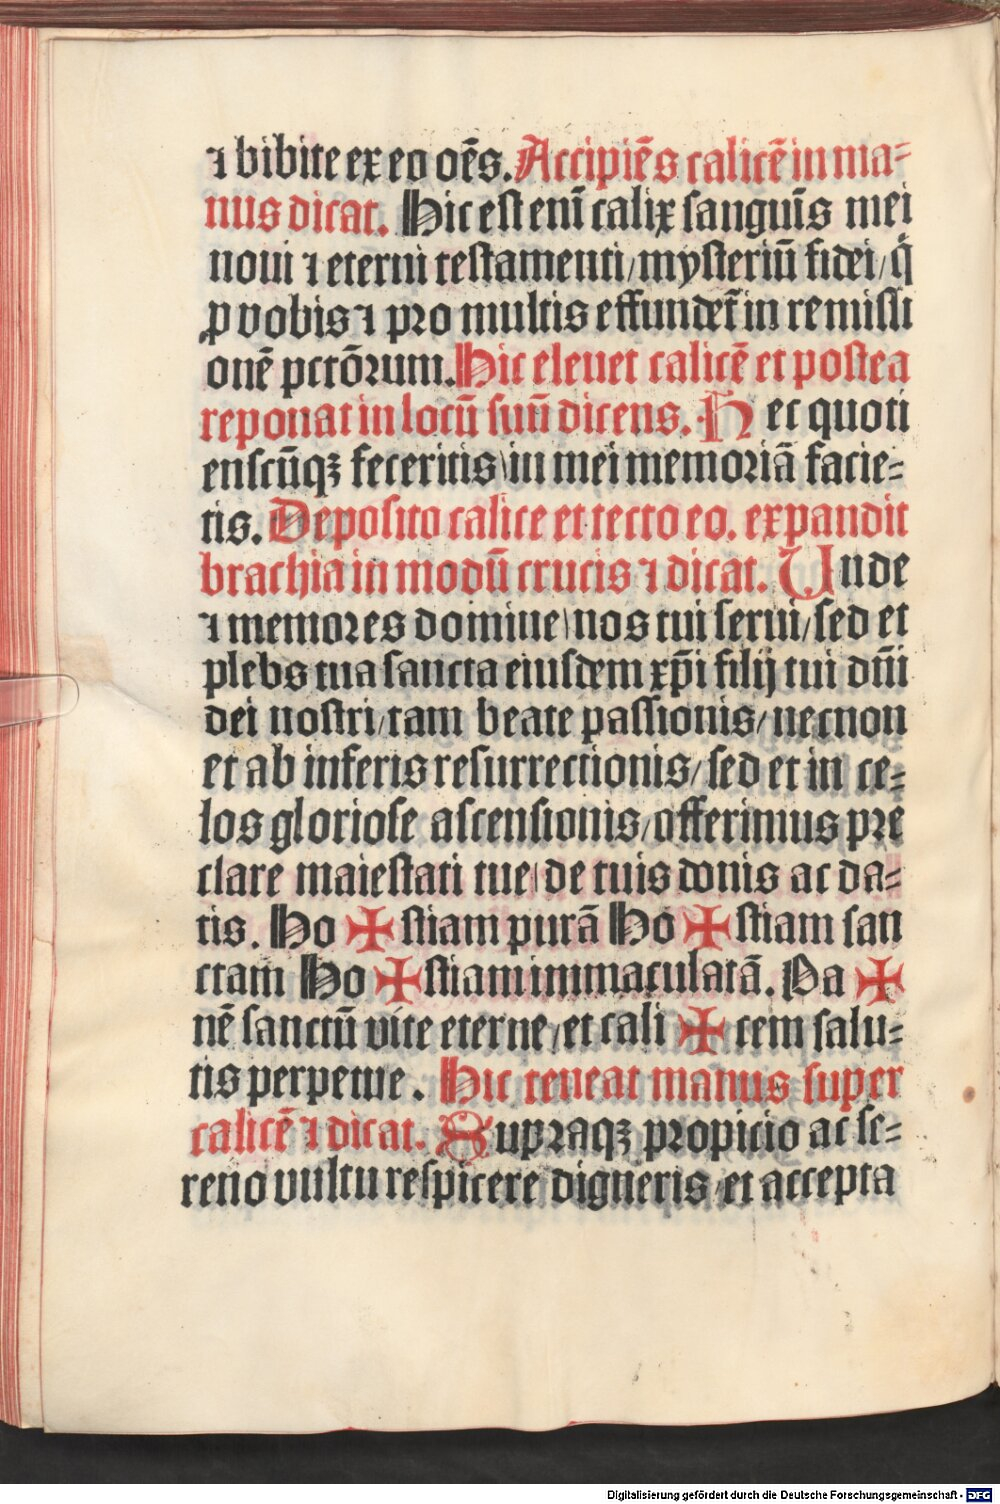 ⁊ bibite ex eo oēs. Accipiēs calicē in ma⸗
nus dicat. Hic est eni̅ calix sanguīs mei
noui ⁊ eterni testamenti/ mysteriū fidei/ q̄
ꝓ vobis ⁊ pro multis effundet̄ in remissi
onē pctōꝛum. Hic eleuet calicē et postea
reponat in locū suū dicens. H ec quoti
enscūqꝫ feceritis\ in mei memoꝛiā facie⸗
tis. Deposito calice et tecto eo. expandit
brachia in modū crucis ⁊ dicat. Unde
⁊ memoꝛes domine\ nos tui serui/ sed et
plebs tua sancta eiusdem xp̄i filij tui dn̄i
dei nostri/ tam beate passionis/ necnon
et ab inferis resurrectionis/ sed et in ce⸗
los gloriose ascensionis/ offerimus pꝛe
clare maiestati tue\ de tuis donis ac da⸗
tis. Ho ✠ stiam purā Ho ✠ stiam san
ctam Ho ✠ stiam immaculatā. Pa ✠
nē sanctū vite eterne/ et cali ✠ cem salu⸗
tis perpetue. Hic teneat manus super
calicē ⁊ dicat. Supꝛaqꝫ propicio ac se⸗
reno vultu respicere digneris/ et accepta
Digitalisierung gefördert durch die Deutsche Forschungsgemeinschaft - DFG